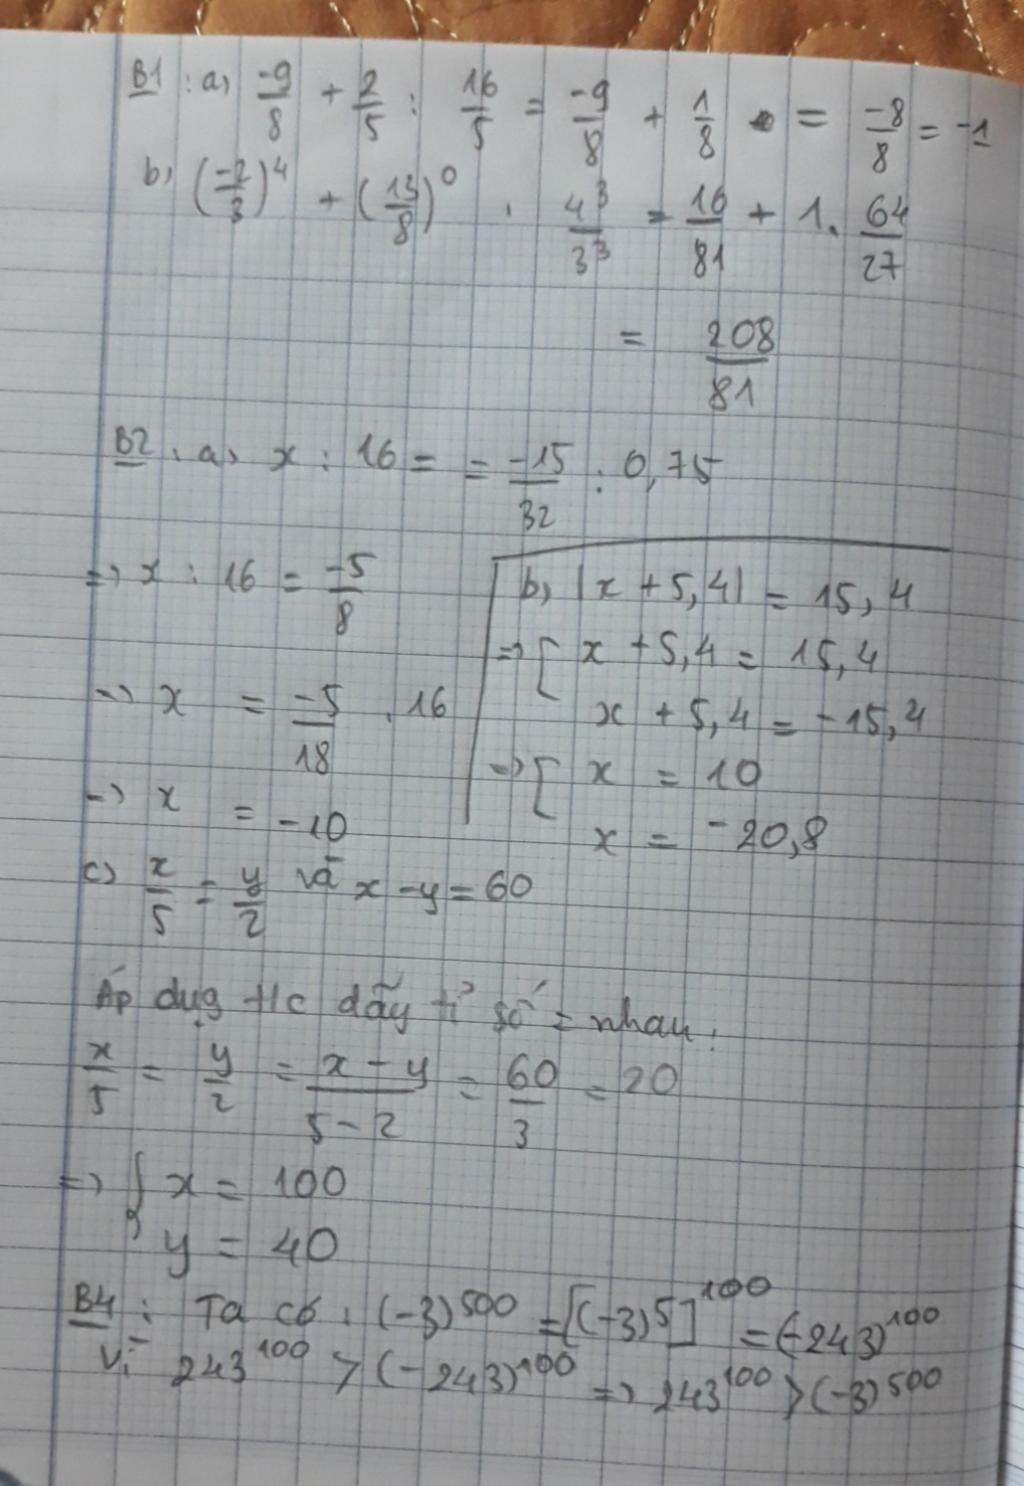 B1 : a) -9/8 + 2/5 : 16/5 = -9/8 + 1/8 = -8/8 = -1
b) (-2/3)^4 + (13/8)^0 . 4^3/3^3 = 16/81 + 1. 64/27
= 208/81
B2 . a) x : 16 = = -15/32 : 0,75
=> x : 16 = -5/8
=> x = -5/18 . 16
=> x = -10
b) |x + 5,4| = 15,4
=> [ x + 5,4 = 15,4
x + 5,4 = -15,4
=> [ x = 10
x = -20,8
c) x/5 = y/2 và x - y = 60
Áp dụg t/c dãy tỉ số = nhau :
x/5 = y/2 = x - y/5 - 2 = 60/3 = 20
=> { x = 100
y = 40
B4 : Ta có : (-3)^500 = [(-3)^5]^100 = (-243)^100
Vì 243^100 > (-243)^100 => 243^100 > (-3)^500